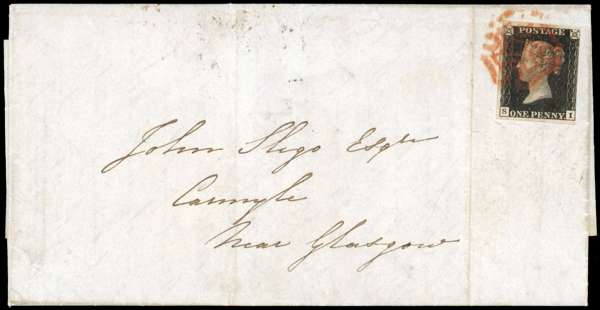 POSTAGE
S I
ONE PENNY
John Sligo Esqre
Carmyle
Near Glasgow